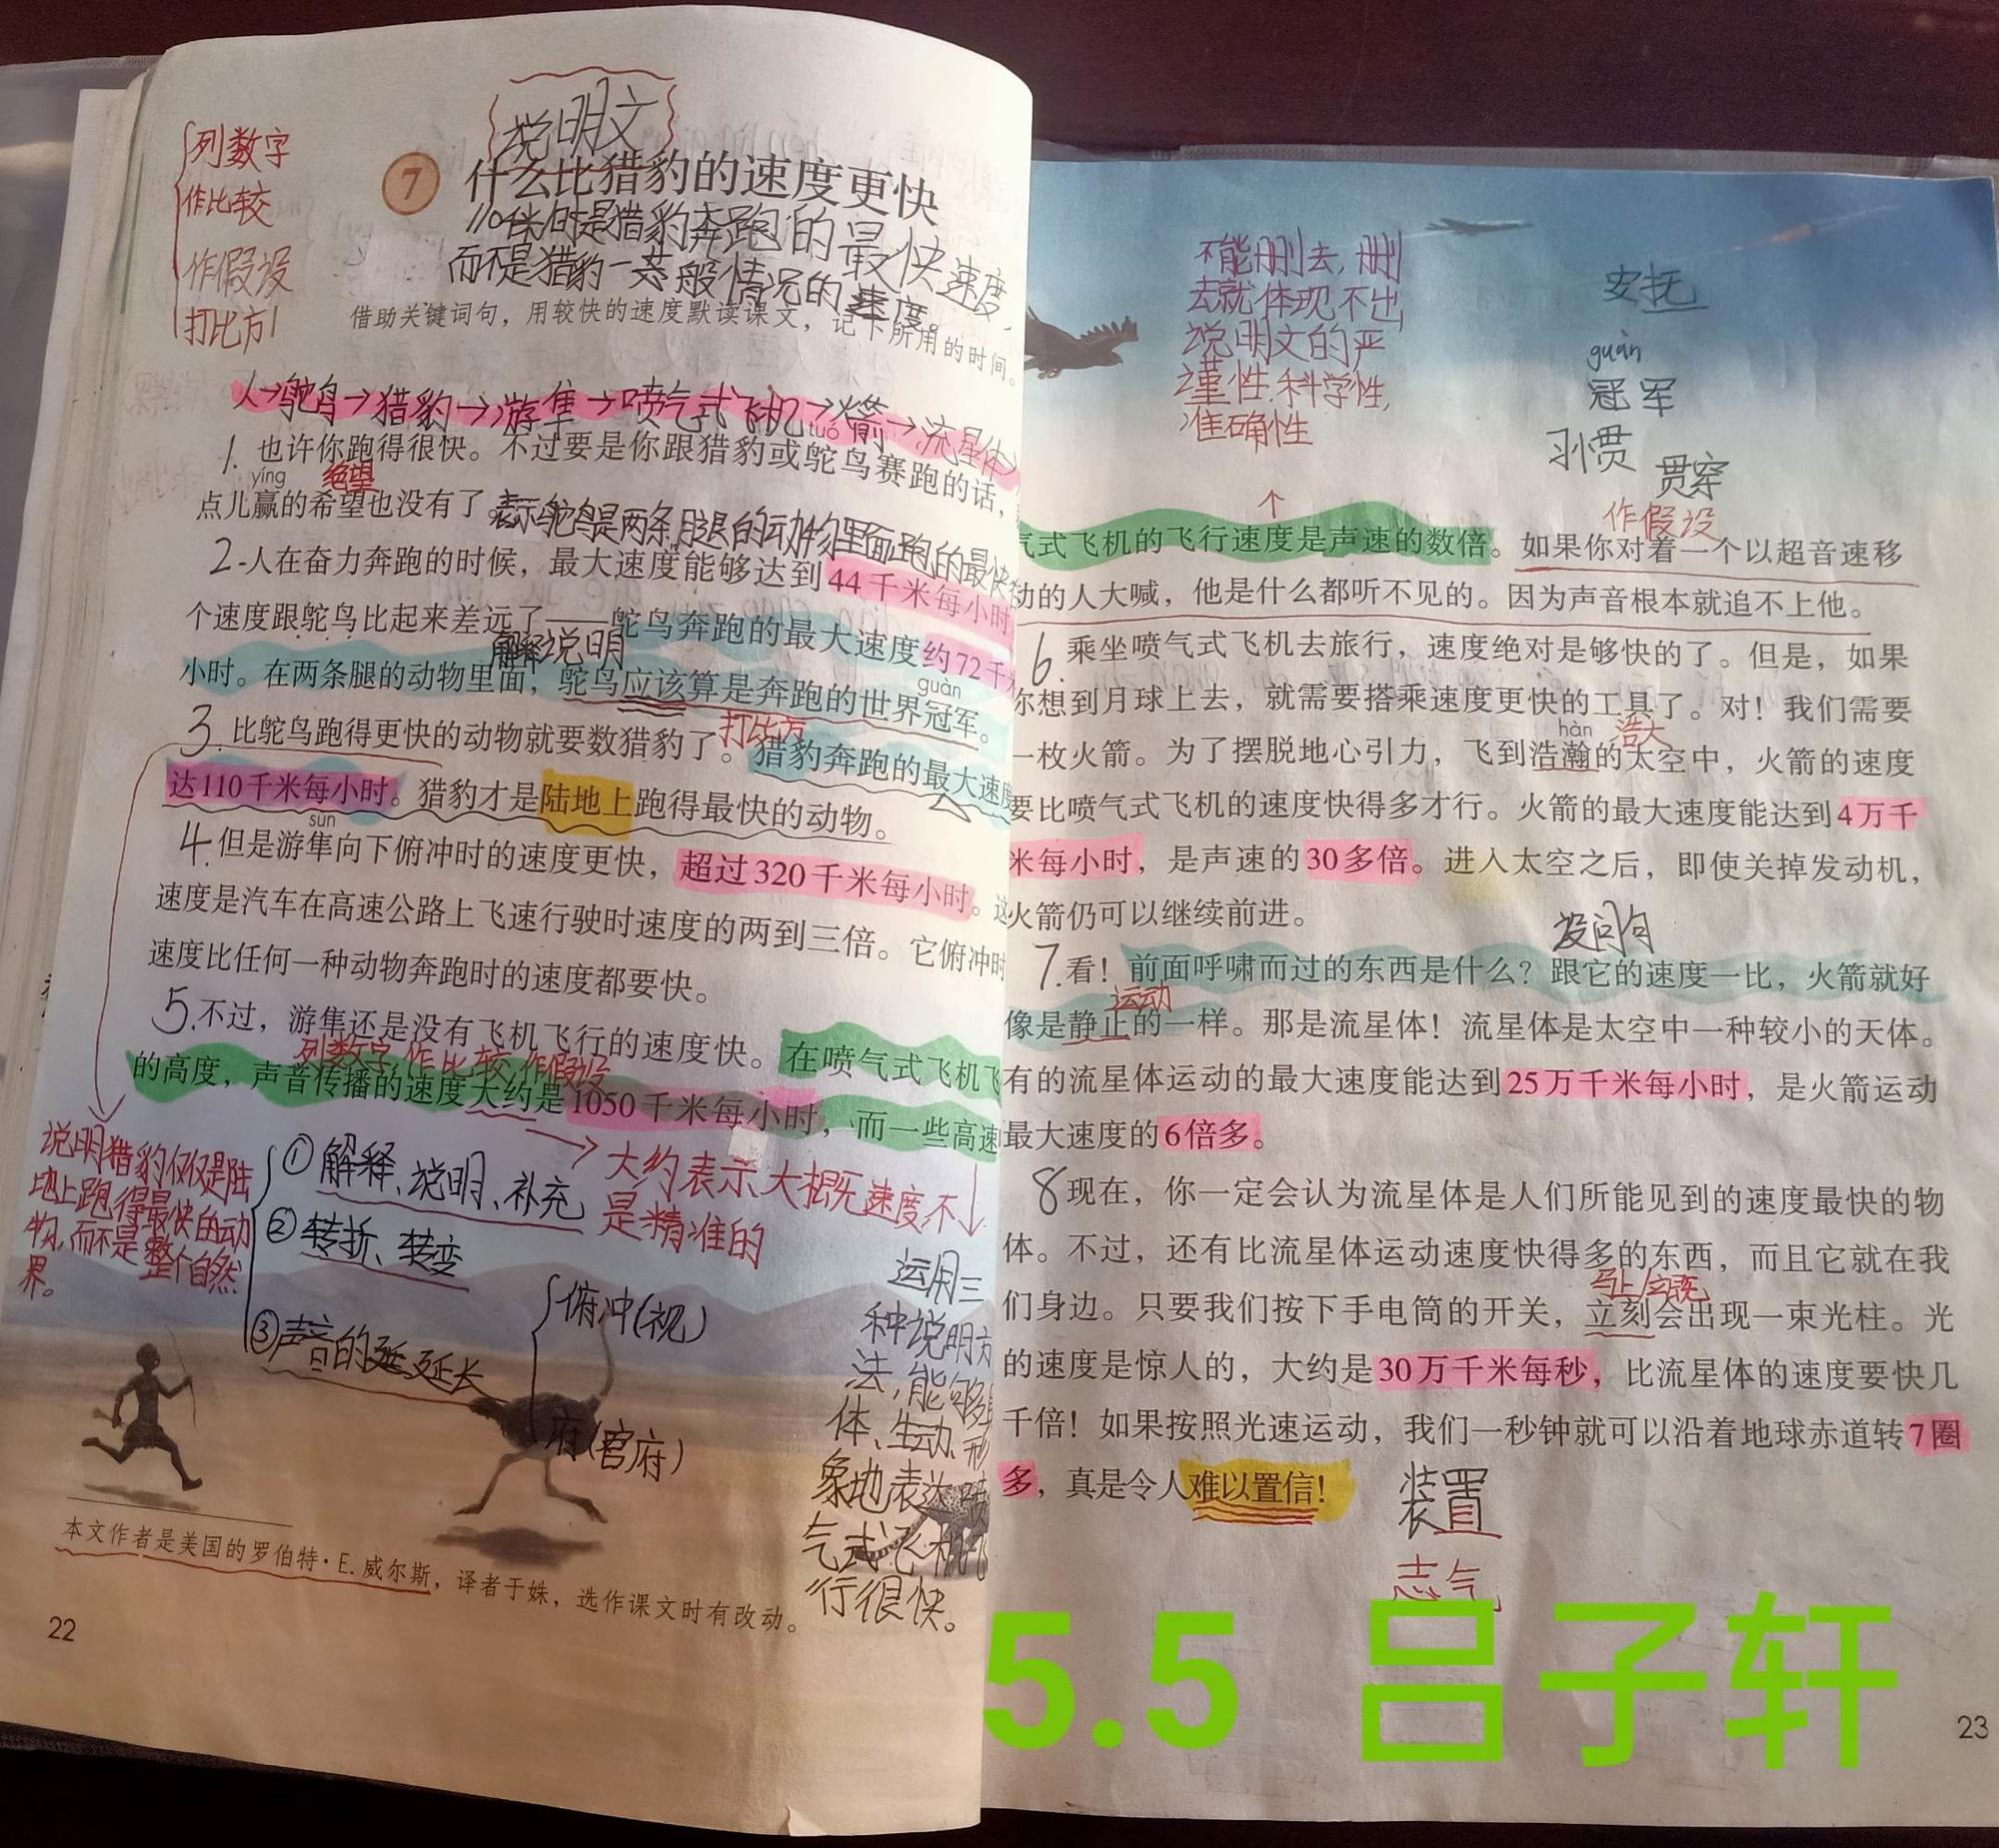 说明文
列数字
作比较
作假设
打比方
7 什么比猎豹的速度更快
是猎豹奔跑的最快速度,
而不是猎豹一般情况的速度。
借助关键词句，用较快的速度默读课文，记下所用的时间。
人→鸵鸟→猎豹→游隼→喷气式飞机→火箭→流星体
tuó
1. 也许你跑得很快。不过要是你跟猎豹或鸵鸟赛跑的话，
yíng 绝望
点儿赢的希望也没有了。
表示鸵鸟是两条腿的动物里面跑的最快
2.人在奋力奔跑的时候，最大速度能够达到44千米每小时
个速度跟鸵鸟比起来差远了——鸵鸟奔跑的最大速度约72千
解释说明
小时。在两条腿的动物里面，鸵鸟应该算是奔跑的世界冠军。
guàn
3.比鸵鸟跑得更快的动物就要数猎豹了。猎豹奔跑的最大速度
打比方
达110千米每小时。猎豹才是陆地上跑得最快的动物。
sǔn
4.但是游隼向下俯冲时的速度更快，超过320千米每小时。这
速度是汽车在高速公路上飞速行驶时速度的两到三倍。它俯冲时
速度比任何一种动物奔跑时的速度都要快。
5.不过，游隼还是没有飞机飞行的速度快。在喷气式飞机飞
列数字 作比较 作假设
的高度，声音传播的速度大约是1050千米每小时，而一些高速
说明猎豹仅仅是陆
地上跑得最快的动
物,而不是整个自然
界。
①解释、说明、补充
②转折、转变
③声音的延延长
大约表示大概速度不
是精准的
俯冲(视)
府(官府)
运用三
种说明方
法,能够
体、生动、形
象地表达
气式飞机飞
行很快。
本文作者是美国的罗伯特·E.威尔斯，译者于姝，选作课文时有改动。
22
不能删去,删
去就体现不出
说明文的严
谨性.科学性,
准确性
安抚
guàn
冠军
习惯
贯穿
作假设
气式飞机的飞行速度是声速的数倍。如果你对着一个以超音速移
动的人大喊，他是什么都听不见的。因为声音根本就追不上他。
6.乘坐喷气式飞机去旅行，速度绝对是够快的了。但是，如果
你想到月球上去，就需要搭乘速度更快的工具了。对！我们需要
hàn 浩大
一枚火箭。为了摆脱地心引力，飞到浩瀚的太空中，火箭的速度
要比喷气式飞机的速度快得多才行。火箭的最大速度能达到4万千
米每小时，是声速的30多倍。进入太空之后，即使关掉发动机，
火箭仍可以继续前进。
设问句
7.看！前面呼啸而过的东西是什么？跟它的速度一比，火箭就好
运动
像是静止的一样。那是流星体！流星体是太空中一种较小的天体。
有的流星体运动的最大速度能达到25万千米每小时，是火箭运动
最大速度的6倍多。
8现在，你一定会认为流星体是人们所能见到的速度最快的物
体。不过，还有比流星体运动速度快得多的东西，而且它就在我
马上/立既
们身边。只要我们按下手电筒的开关，立刻会出现一束光柱。光
的速度是惊人的，大约是30万千米每秒，比流星体的速度要快几
千倍！如果按照光速运动，我们一秒钟就可以沿着地球赤道转7圈
多，真是令人难以置信！
装置
志气
5.5 吕子轩
23